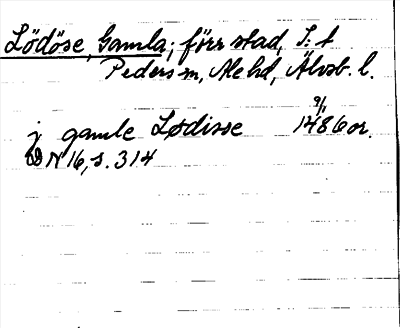 Lödöse, Gamla; förr stad, S:t
Peders sn, Ale hd, Älvsb. l.
9/1
j gamle Lødisse 1486 or.
N 16, s. 314